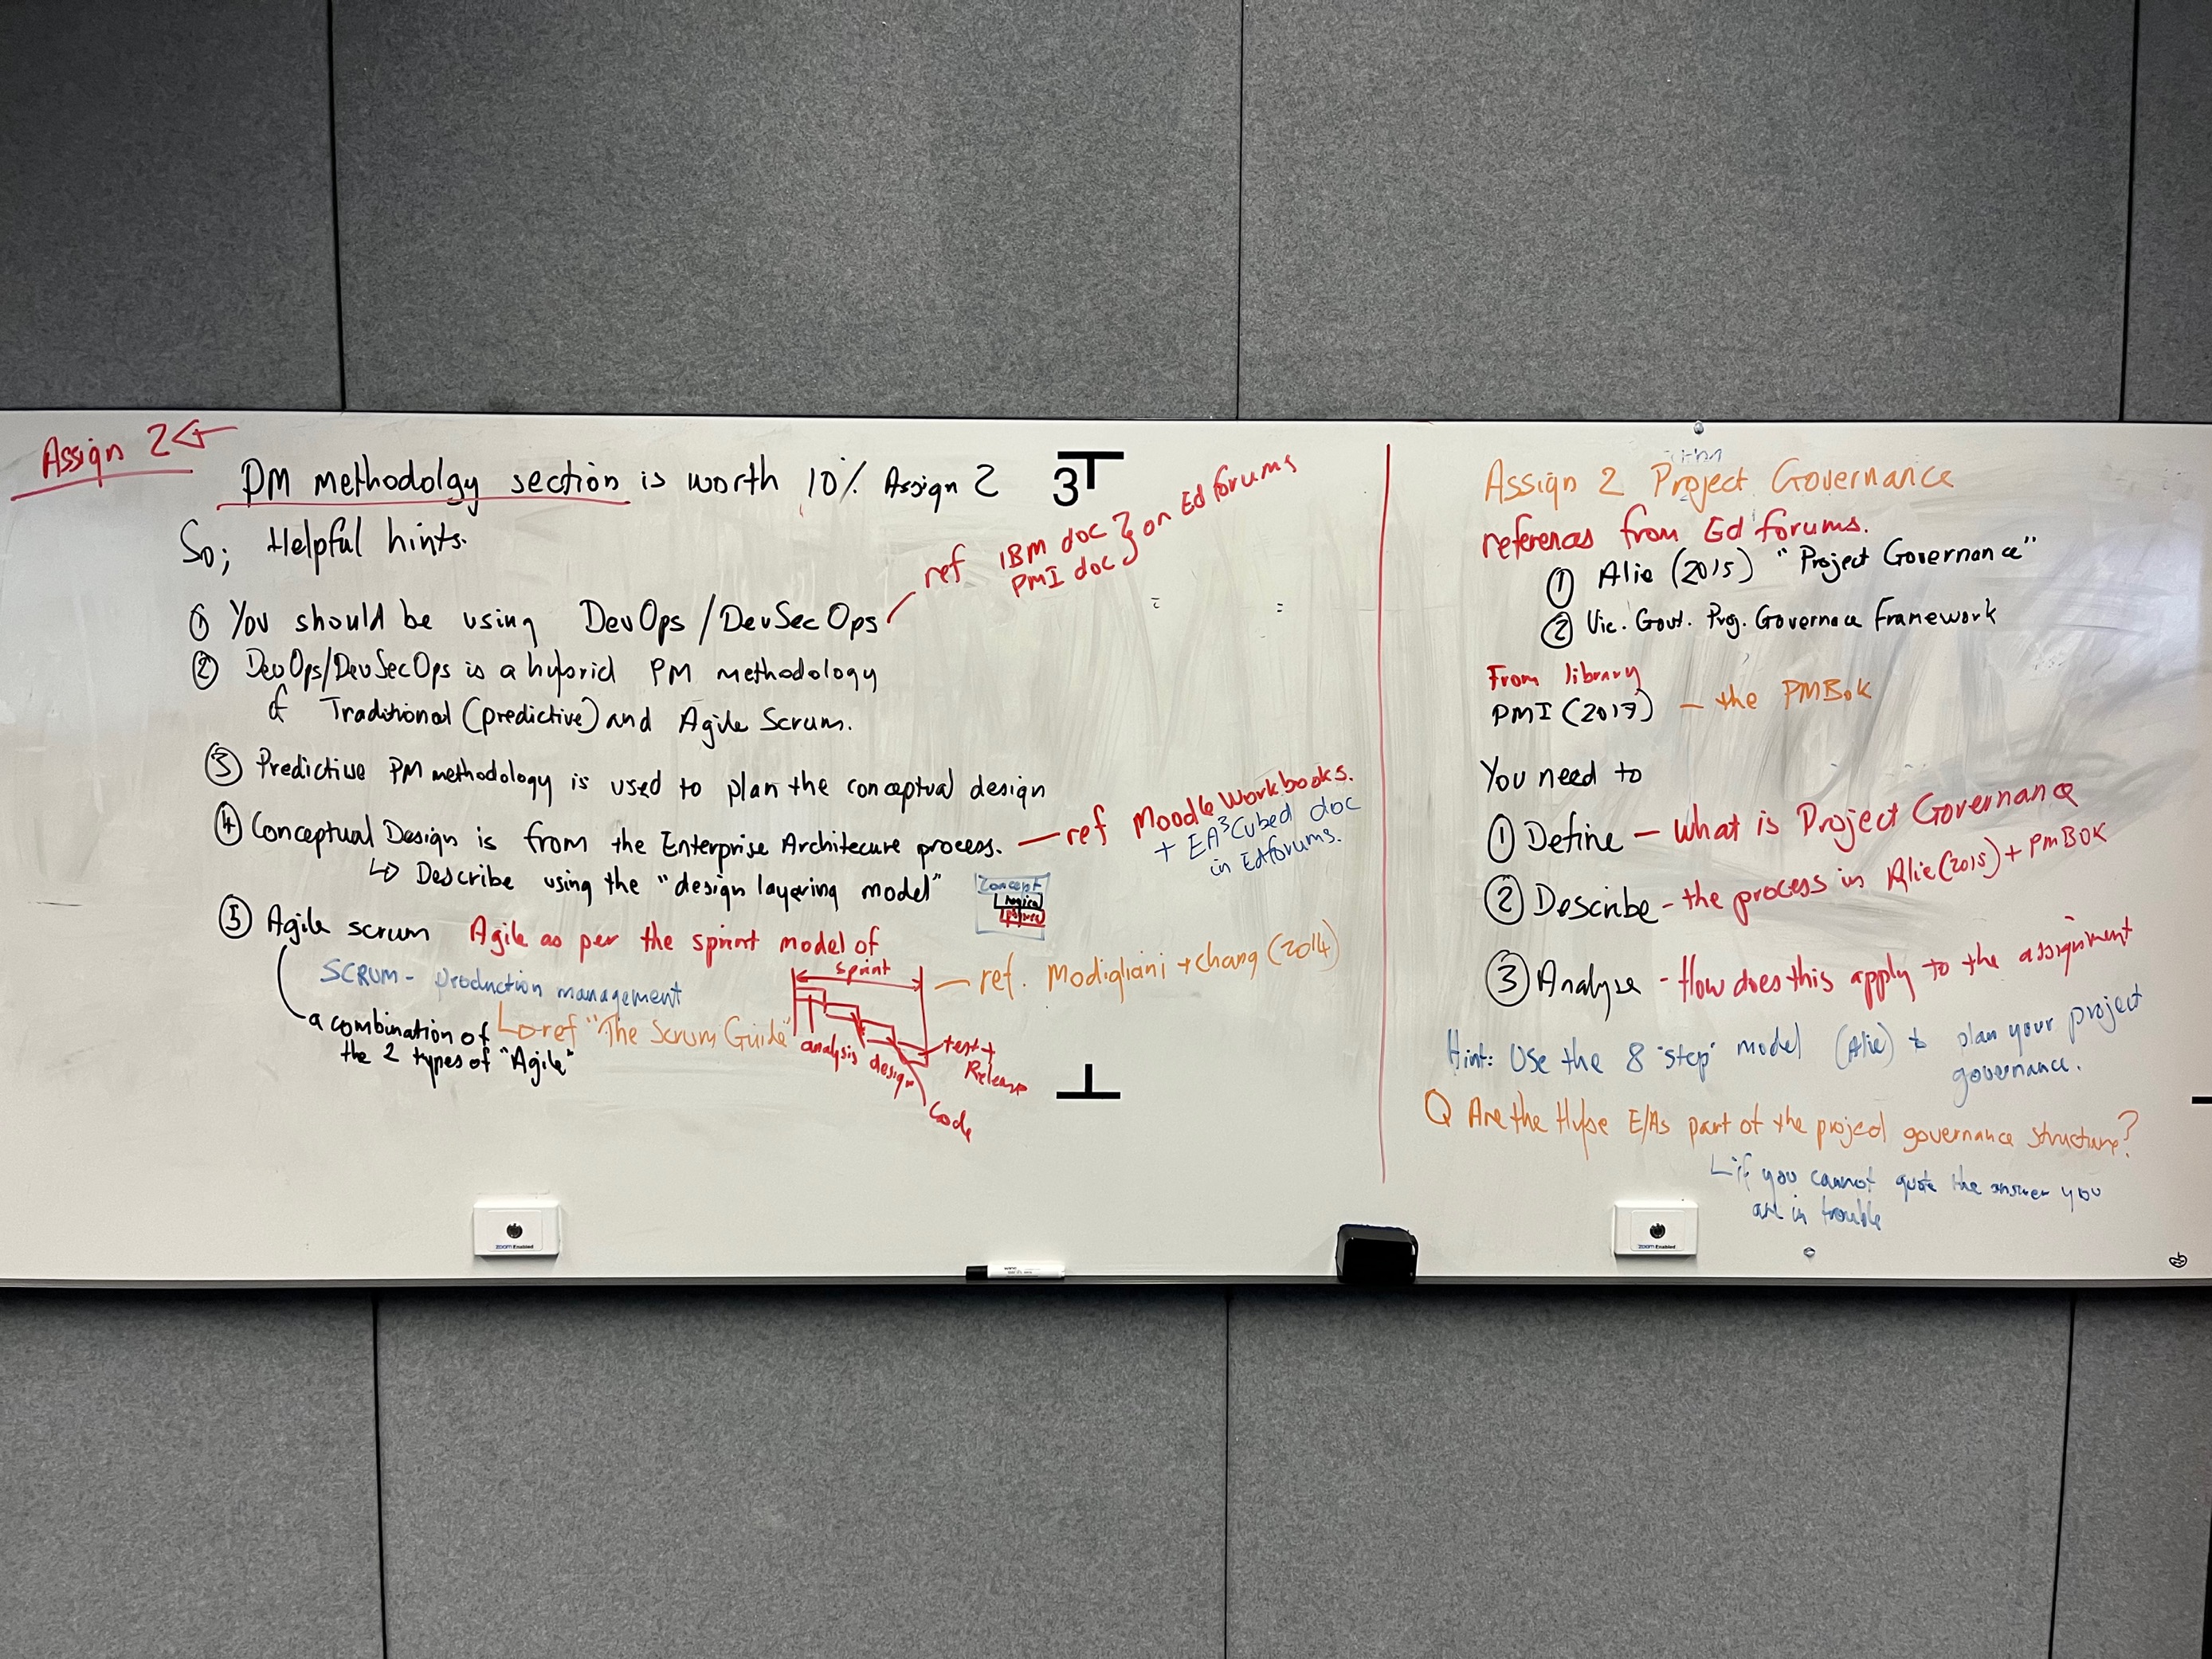 Assign 2
PM methodolgy section is worth 10% Assign 2
So; Helpful hints.
3
ref IBM doc
PMI doc
on Ed forums
① You should be using DevOps/DevSecOps
② DevOps/DevSecOps is a hybrid PM methodology
of Traditional (predictive) and Agile Scrum.
③ Predictive PM methodology is used to plan the conceptual design
④ Conceptual Design is from the Enterprise Architecure process.
ref Moodle Workbooks.
+ EA³Cubed doc
in Edforums.
↳ Describe using the "design layering model"
Concept
logical
physical
⑤ Agile scrum Agile as per the sprint model of
sprint
ref. Modigliani + chang (2014)
SCRUM - production management
ref "The Scrum Guide"
a combination of
the 2 types of "Agile"
analysis
design
code
test +
Release
zoom Enabled
Assign 2 Project Governance
references from Ed forums.
① Alie (2015) "Project Governance"
② Vic. Govt. Proj. Governace Framework
From library
PMI (2017) - the PMBoK
You need to
① Define - what is Project Governance
② Describe - the process in Alie (2015) + PMBOK
③ Analyse - How does this apply to the assignment
Hint: Use the 8 "step" model (Alie) to plan your project
governance.
Q Are the E/As part of the project governance structure?
if you cannot quote the answer you
are in trouble
zoom Enabled